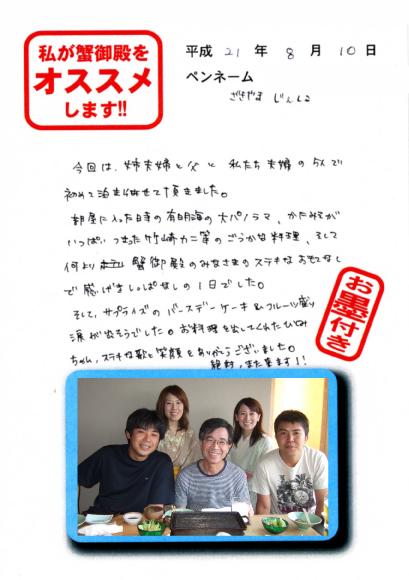 私が蟹御殿を
オススメ
します!!
平成 21 年 8 月 10 日
ペンネーム
ざきやま じんしこ
今回は、姉夫婦と父と 私たち夫婦の5人で
初めて泊まらせて頂きました。
部屋に入った時の有明海の大パノラマ、かにみそが
いっぱいつまった竹崎カニ等のごうかな料理、そして
何より 蟹御殿のみなさまのステキなおもてなし
で感げきしっぱなしの1日でした。
そして、サプライズのバースデーケーキ&フルーツ盛り
涙が出そうでした。お料理を出してくれたひとみ
ちゃん、ステキな歌と笑顔をありがとうございました。
絶対、また来ます!!
お墨付き